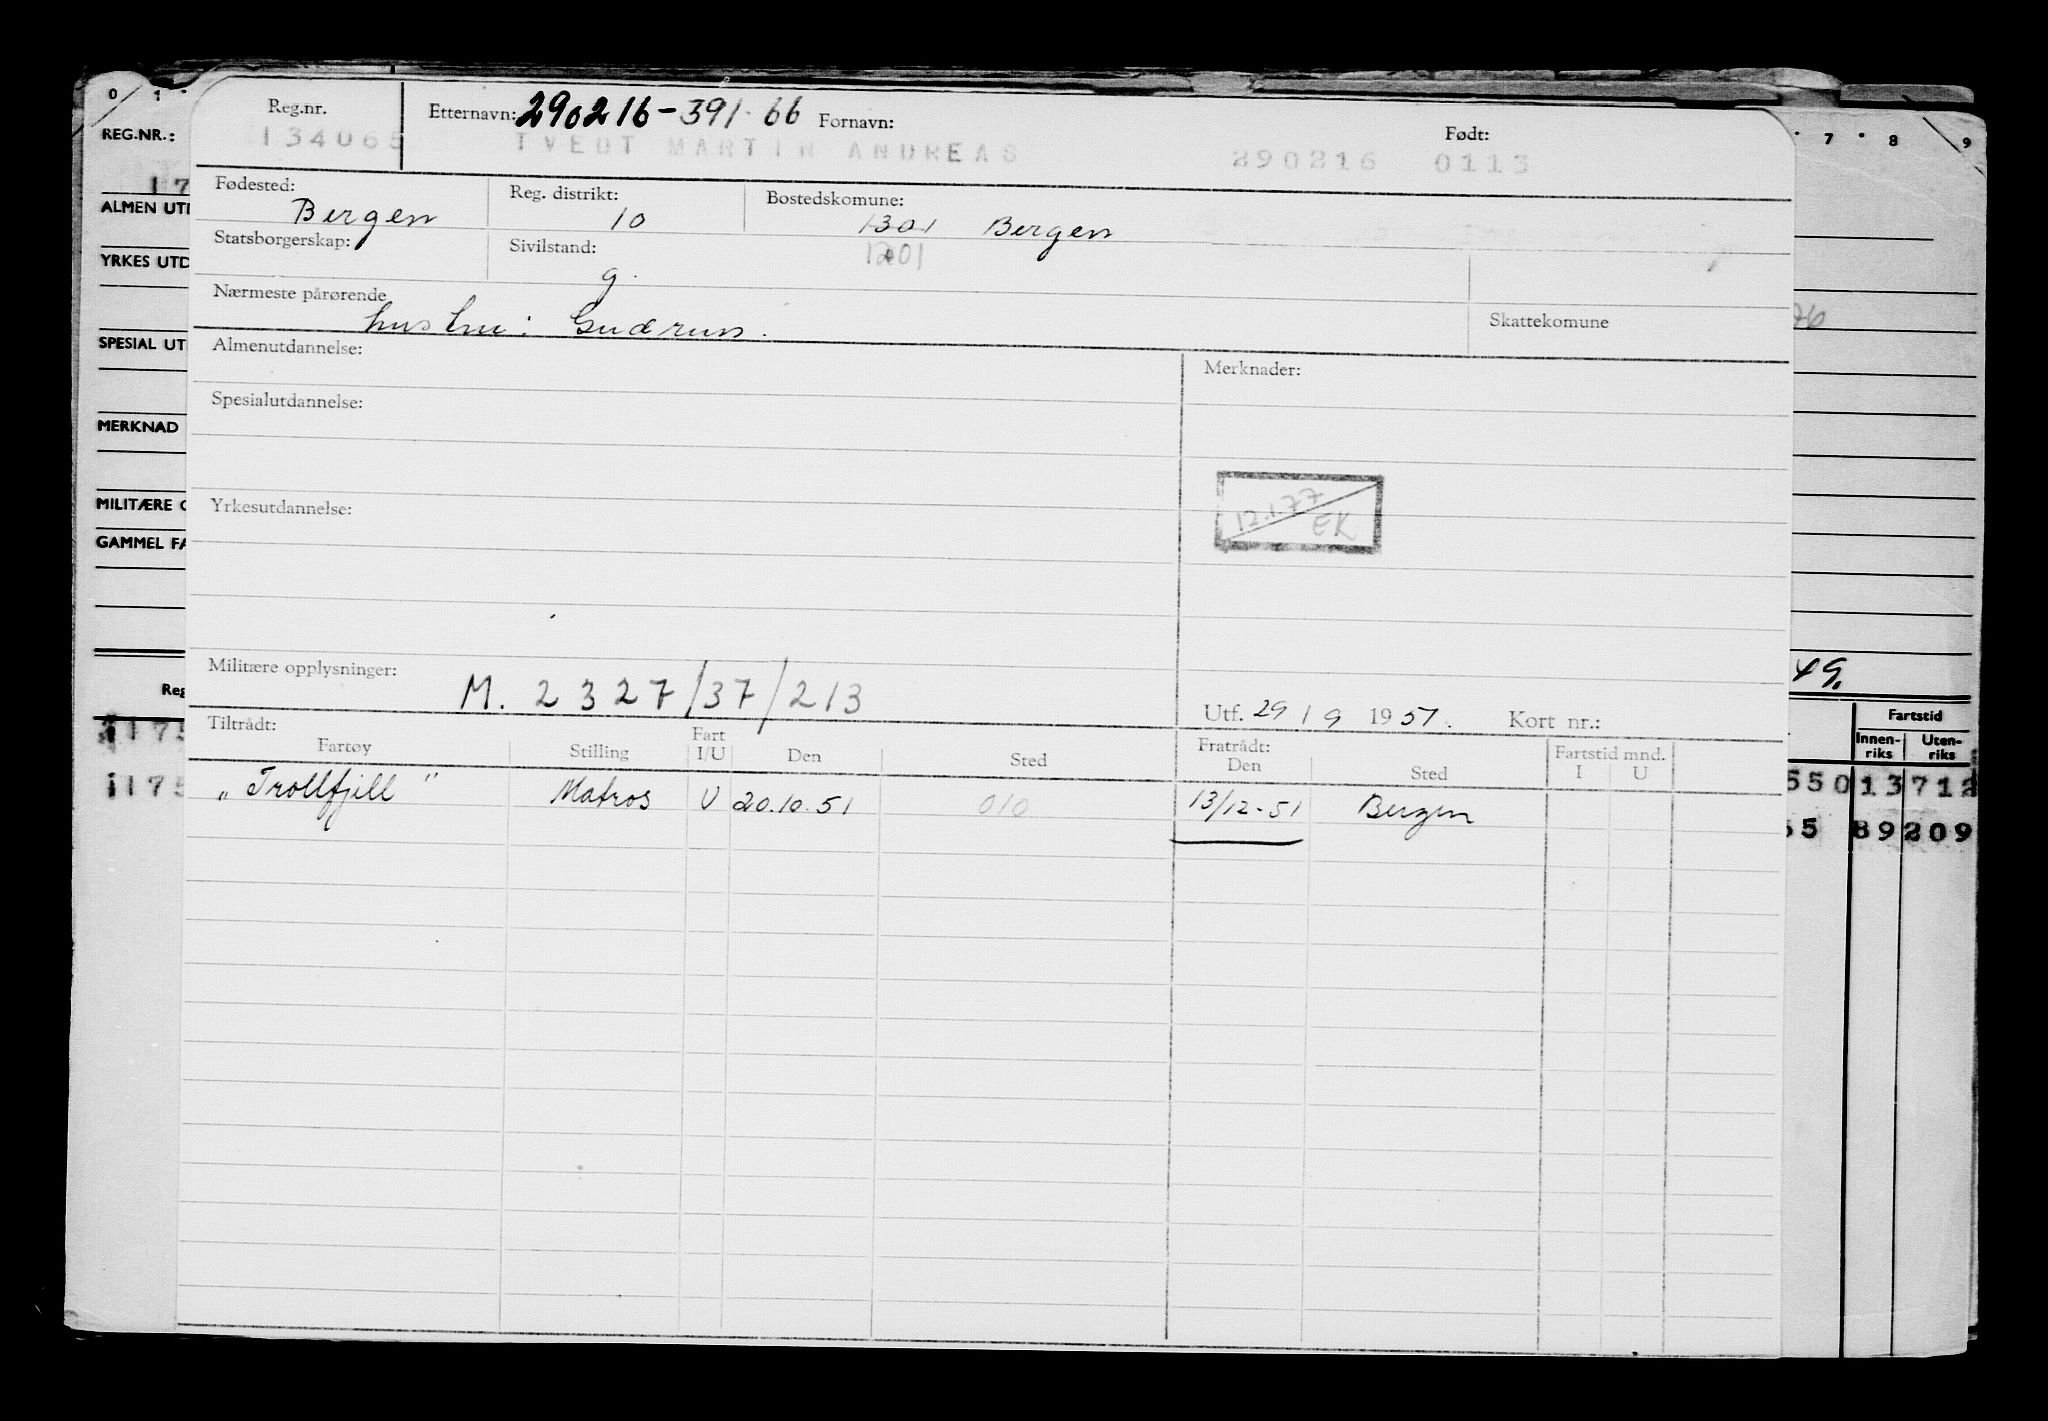 0 1 7 8 9
REG.NR.:
17
ALMEN UTD
YRKES UTD
SPESIAL UT
MERKNAD
MILITÆRE O
GAMMEL FA
Reg
1175
1175
Reg.nr. Etternavn: 290216-391.66 Fornavn: Født:
134065 TVEDT MARTIN ANDREAS 290216 0113
Fødested: Reg. distrikt: Bostedskomune:
Bergen 10 1301 Bergen
Statsborgerskap: Sivilstand: 1201
g.
Nærmeste pårørende Skattekomune
hustru: Gudrun.
Almenutdannelse: Merknader:
Spesialutdannelse:
12.1.77
EK
Yrkesutdannelse:
Militære opplysninger: M. 2327/37/213
Utf. 29 / 9 1951. Kort nr.:
Tiltrådt: Fratrådt:
Fartøy Stilling Fart I/U Den Sted Den Sted Fartstid mnd. I U
„Trollfjell" Matros U 20.10.51 010 13/12-51 Bergen
76
49.
Fartstid
Innen-riks Uten-riks
550 13 712
55 89 209